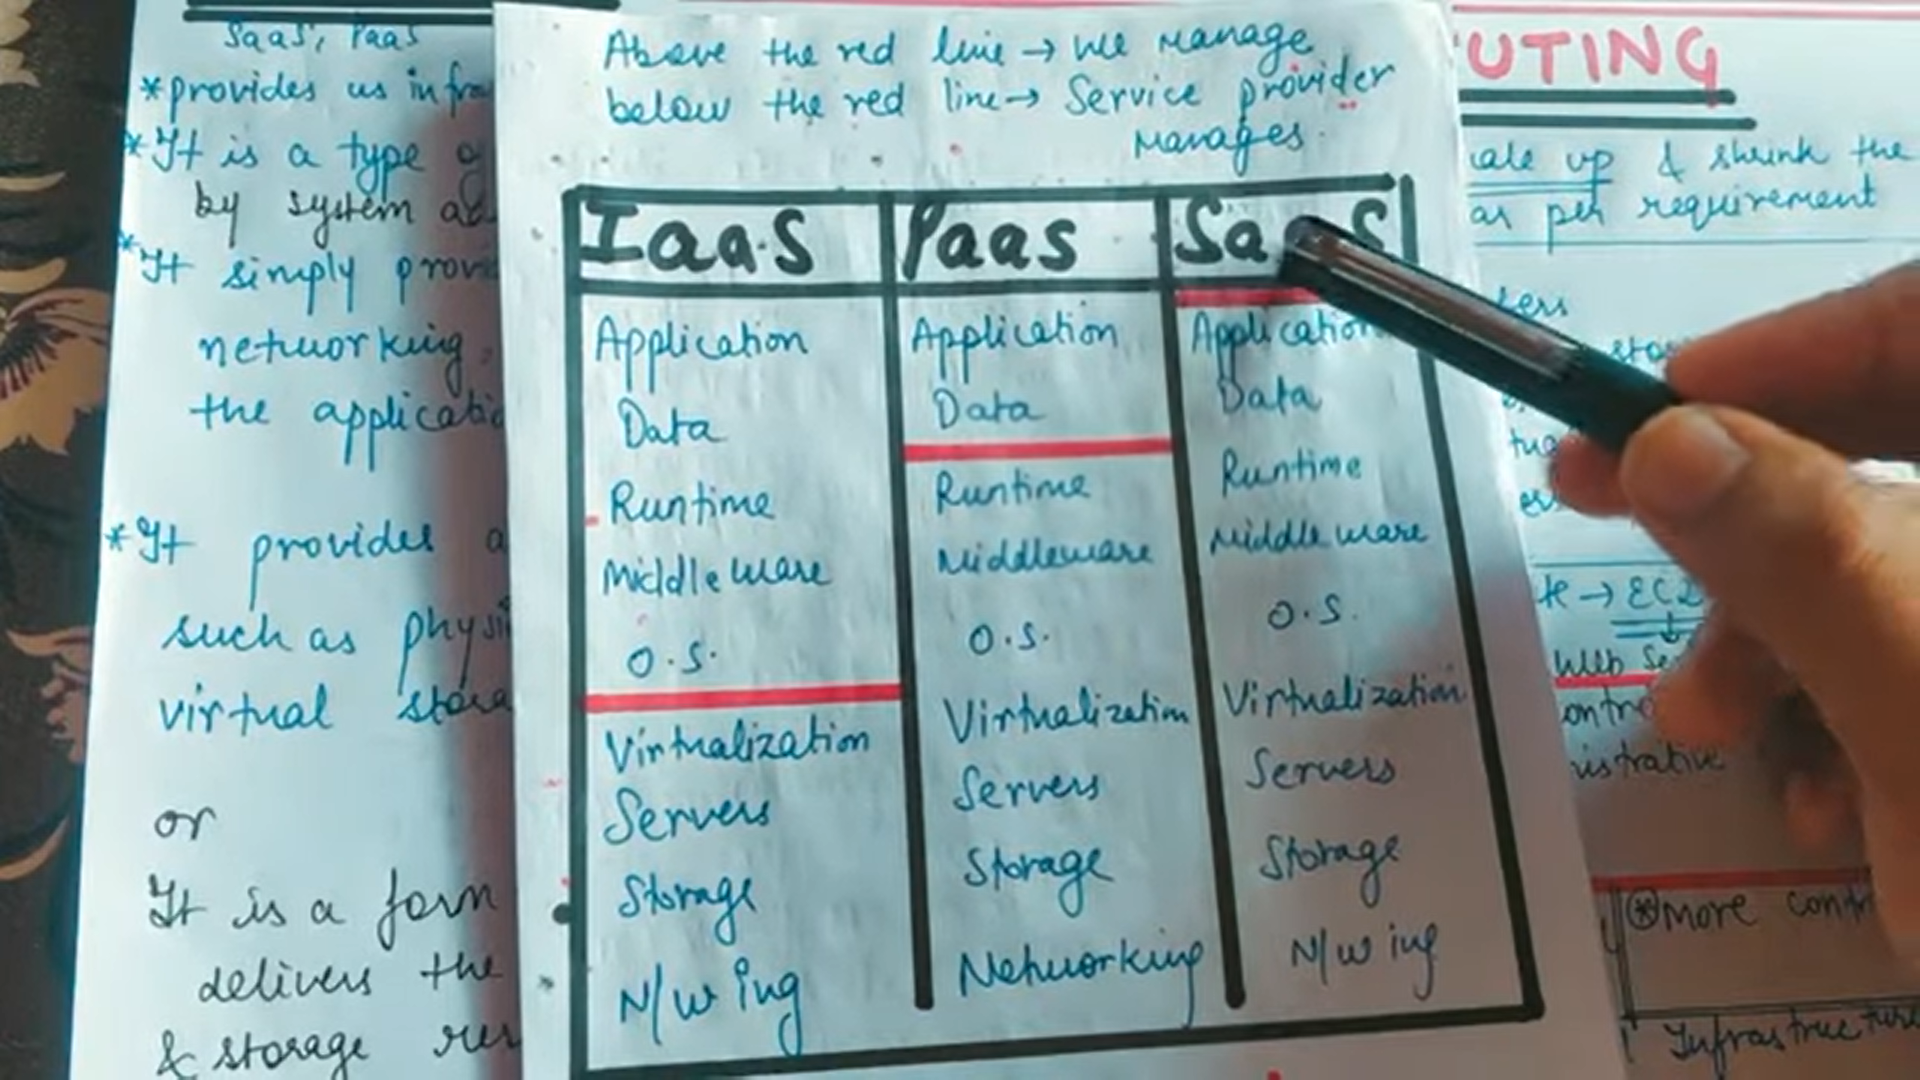 SaaS, PaaS
*provides us infra
*It is a type
by system ad
*It simply prov
networking,
the applicatio
*It provides a
such as physi
virtual stora
or
It is a form
delivers the
& storage res
Above the red line → we manage
below the red line → Service provider
manages.
IaaS PaaS SaaS
Application Application Application
Data Data Data
Runtime Runtime Runtime
Middleware Middleware Middleware
O.S. O.S. O.S.
Virtualization Virtualization Virtualization
Servers Servers Servers
Storage Storage Storage
N/w ing Networking N/w ing
UTING
cale up & shrink the
as per requirement
→ EC2
Web Se
contro
nistrative
* More contr
Infrastructure